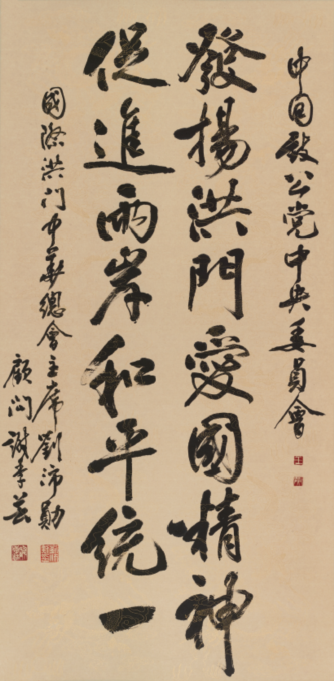 中国致公党中央委員會
發揚洪門愛國精神
促進兩岸和平統一
國際洪门中華總會主席劉沛勛
顧问謝李益